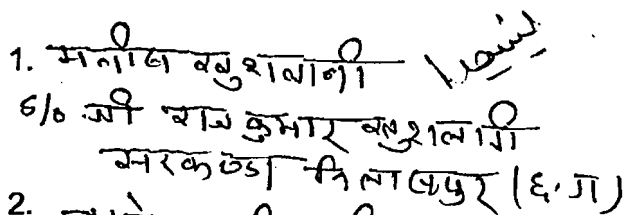 1. मनीष खुशलानी
S/o श्री राज कुमार खुशलानी
सरकण्डा बिलासपुर (छ.ग)
2.